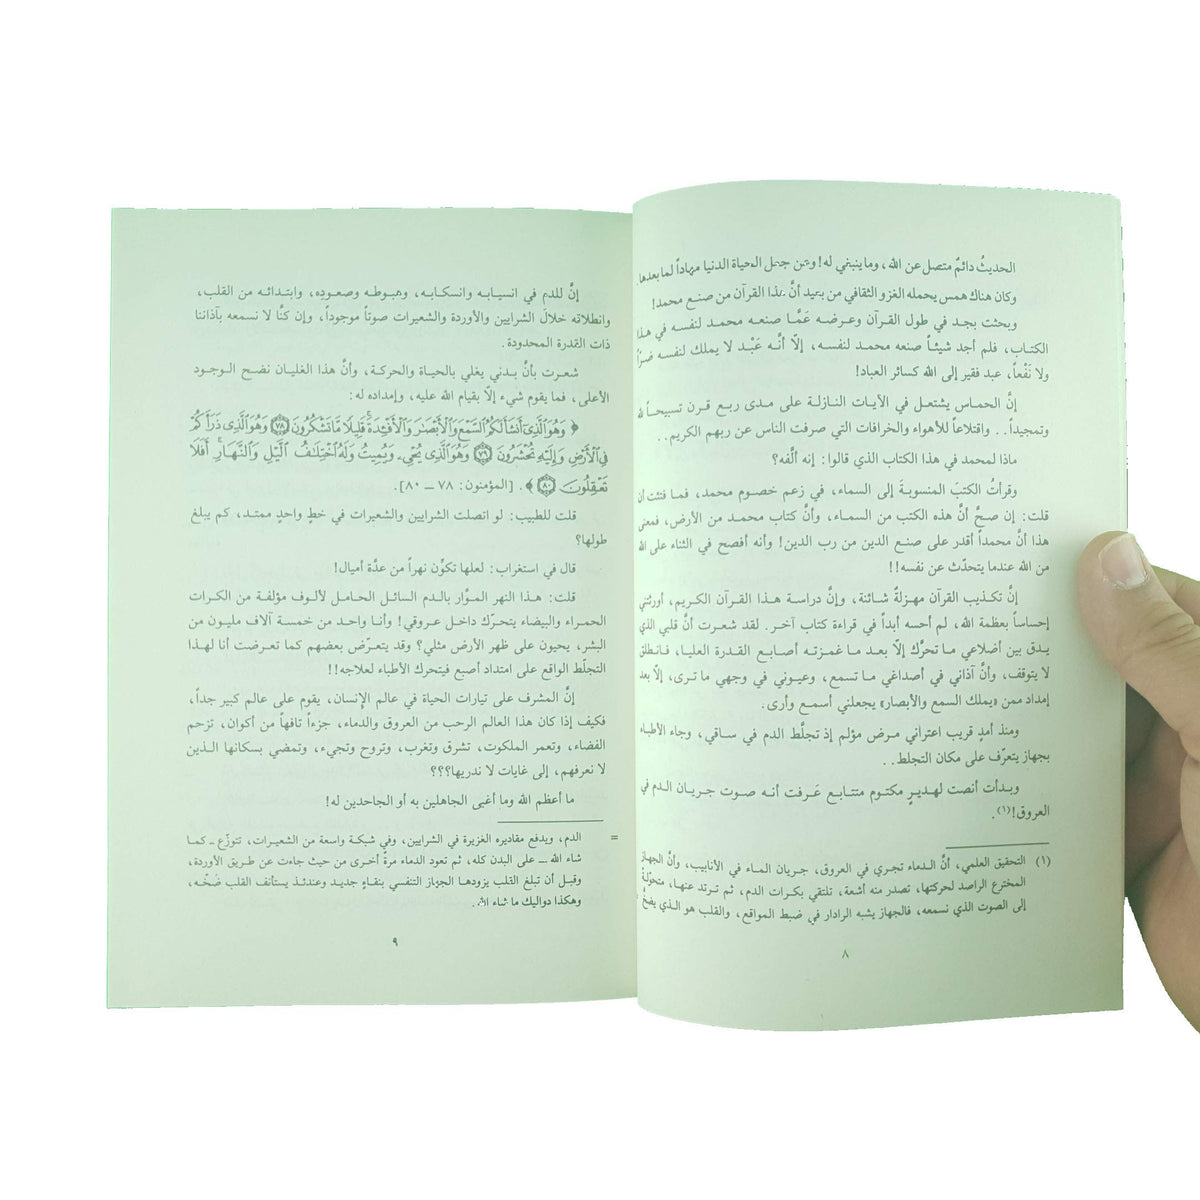 الحديثُ دائمٌ متصل عن الله، وما ينبغي له! ومن جعل الحياة الدنيا مهاداً لما بعدها
وكان هناك همس يحمله الغزو الثقافي من بعيد أنَّ هذا القرآن من صنع محمد!
وبحثت بجد في طول القرآن وعرضه عَمَّا صنعه محمد لنفسه في هذا
الكتاب، فلم أجد شيئاً صنعه محمد لنفسه، إلّا أنَّه عَبْد لا يملك لنفسه ضرّاً
ولا نَفْعاً، عبد فقير إلى الله كسائر العباد!
إنَّ الحماس يشتعل في الآيات النازلة على مدى ربع قرن تسبيحاً لله
وتمجيداً.. واقتلاعاً للأهواء والخرافات التي صرفت الناس عن ربهم الكريم..
ماذا لمحمد في هذا الكتاب الذي قالوا: إنه ألَّفه؟
وقرأتُ الكتبَ المنسوبةَ إلى السماء، في زعم خصوم محمد، فما فتئت أن
قلت: إن صحَّ أنَّ هذه الكتب من السماء، وأنَّ كتاب محمد من الأرض، فمعنى
هذا أنَّ محمداً أقدر على صنع الدين من رب الدين! وأنه أفصح في الثناء على الله
من الله عندما يتحدّث عن نفسه!!
إنَّ تكذيب القرآن مهزلةٌ شائنة، وإنَّ دراسة هذا القرآن الكريم، أورثتني
إحساساً بعظمة الله، لم أحسه أبداً في قراءة كتاب آخر. لقد شعرت أنَّ قلبي الذي
يدق بين أضلاعي ما تحرَّك إلّا بعد ما غمزته أصابع القدرة العليا، فانطلق
لا يتوقف، وأنَّ آذاني في أصداغي ما تسمع، وعيوني في وجهي ما ترى، إلّا بعد
إمداد ممن «يملك السمع والأبصار» يجعلني أسمع وأرى.
ومنذ أمدٍ قريب اعتراني مرض مؤلم إذ تجلّط الدم في ساقي، وجاء الأطباء
بجهاز يتعرّف على مكان التجلط..
وبدأت أنصت لهديرٍ مكتوم متتابع عَرفت أنه صوت جريان الدم في
العروق!(١).
(١) التحقيق العلمي، أنَّ الدماء تجري في العروق، جريان الماء في الأنابيب، وأنَّ الجهاز
المخترع الراصد لحركتها، تصدر منه أشعة، تلتقي بكرات الدم، ثم ترتد عنها، متحوّلةً
إلى الصوت الذي نسمعه، فالجهاز يشبه الرادار في ضبط المواقع، والقلب هو الذي يضخّ
٨
إنَّ للدم في انسيابه وانسكابه، وهبوطه وصعوده، وابتدائه من القلب،
وانطلاقه خلال الشرايين والأوردة والشعيرات صوتاً موجوداً، وإن كنَّا لا نسمعه بآذاننا
ذات القدرة المحدودة.
شعرت بأنَّ بدني يغلي بالحياة والحركة، وأنَّ هذا الغليان نضح الوجود
الأعلى، فما يقوم شيء إلّا بقيام الله عليه، وإمداده له:
﴿ وَهُوَ ٱلَّذِىٓ أَنشَأَ لَكُمُ ٱلسَّمْعَ وَٱلْأَبْصَٰرَ وَٱلْأَفْـِٔدَةَ ۚ قَلِيلًا مَّا تَشْكُرُونَ ٧٨ وَهُوَ ٱلَّذِى ذَرَأَكُمْ
فِى ٱلْأَرْضِ وَإِلَيْهِ تُحْشَرُونَ ٧٩ وَهُوَ ٱلَّذِى يُحْىِۦ وَيُمِيتُ وَلَهُ ٱخْتِلَٰفُ ٱلَّيْلِ وَٱلنَّهَارِ ۚ أَفَلَا
تَعْقِلُونَ ٨٠ ﴾. [المؤمنون: ٧٨ ــ ٨٠].
قلت للطبيب: لو اتصلت الشرايين والشعيرات في خطٍ واحدٍ ممتد، كم يبلغ
طولها؟
قال في استغراب: لعلها تكوِّن نهراً من عدَّة أميال!
قلت: هذا النهر الموَّار بالدم السائل الحامل لألوف مؤلفة من الكرات
الحمراء والبيضاء يتحرّك داخل عروقي! وأنا واحد من خمسة آلاف مليون من
البشر، يحيون على ظهر الأرض مثلي؟ وقد يتعرّض بعضهم كما تعرضت أنا لهذا
التجلّط الواقع على امتداد أصبع فيتحرك الأطباء لعلاجه!!
إنَّ المشرف على تيارات الحياة في عالم الإنسان، يقوم على عالم كبير جداً،
فكيف إذا كان هذا العالم الرحب من العروق والدماء، جزءاً تافهاً من أكوان، تزحم
الفضاء، وتعمر الملكوت، تشرق وتغرب، وتروح وتجيء، وتمضي بسكانها الذين
لا نعرفهم، إلى غايات لا ندريها؟؟؟
ما أعظم الله وما أغبى الجاهلين به أو الجاحدين له!
= الدم، ويدفع مقاديره الغزيرة في الشرايين، وفي شبكة واسعة من الشعيرات، تتوزّع ـ كما
شاء الله ــ على البدن كله، ثم تعود الدماء مرةً أخرى من حيث جاءت عن طريق الأوردة،
وقبل أن تبلغ القلب يزودها الجهاز التنفسي بنقاءٍ جديد وعندئذ يستأنف القلب ضَخّه،
وهكذا دواليك ما شاء الله.
٩